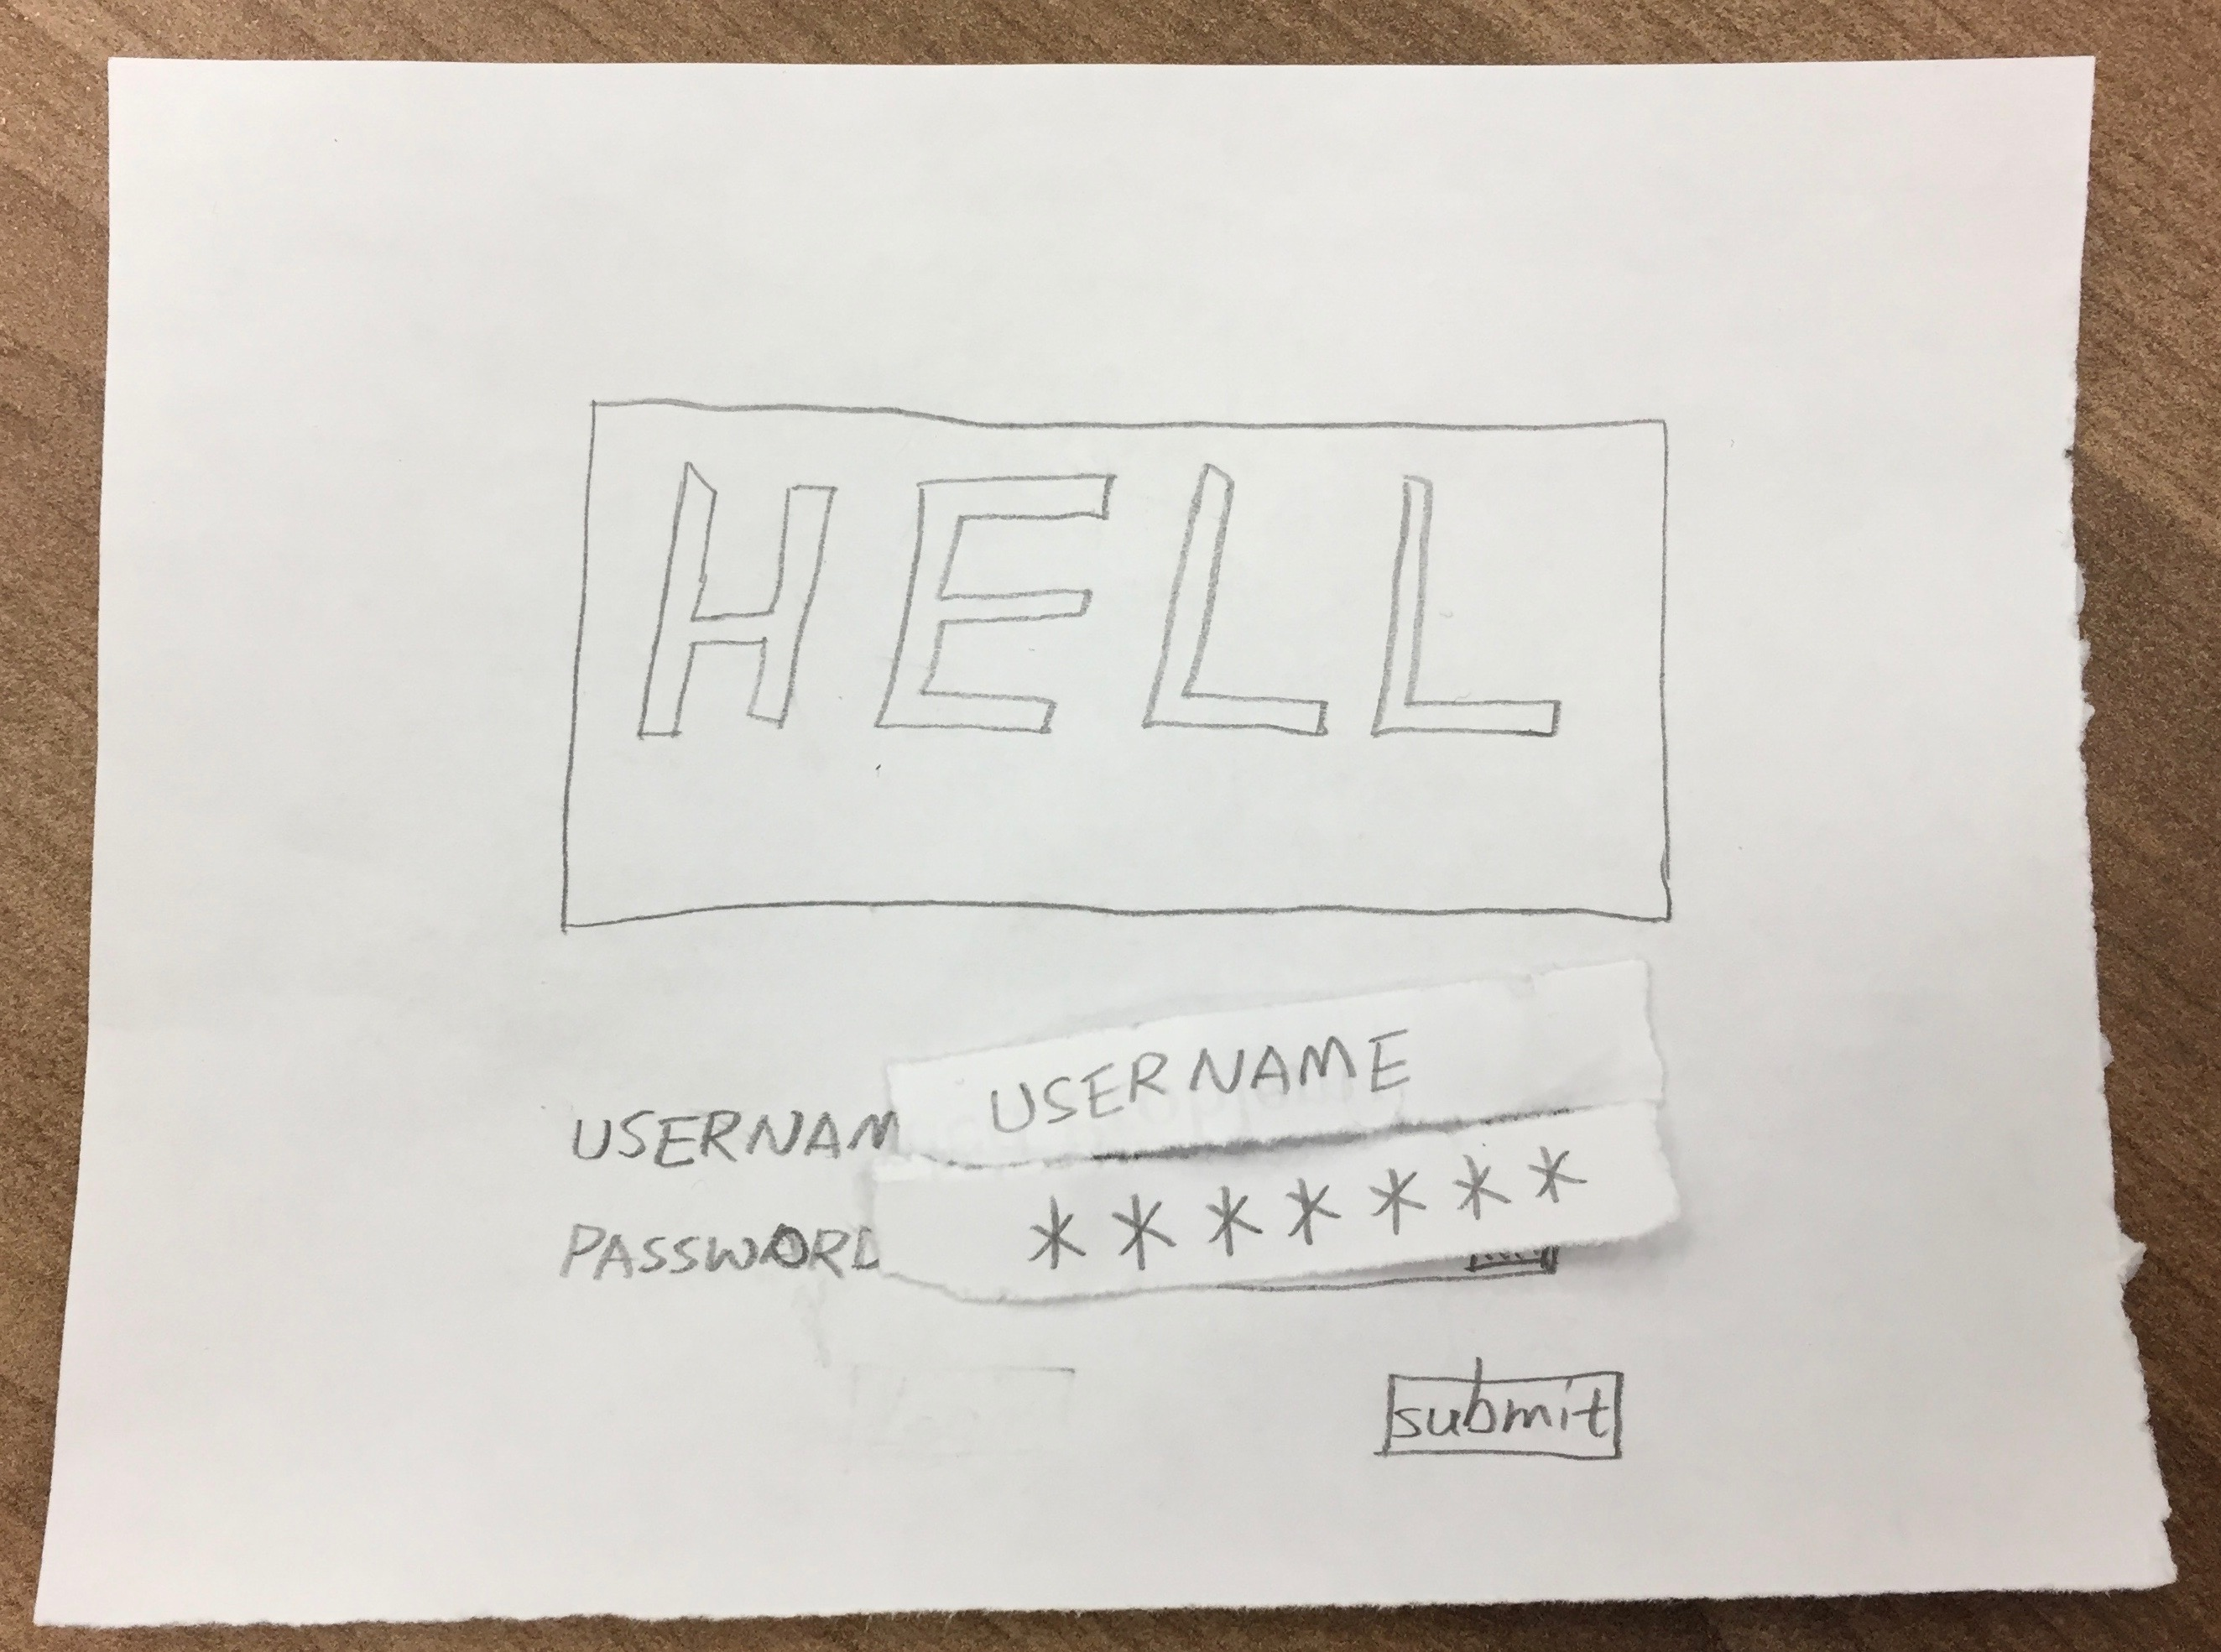 HELL
USERNAM USERNAME
PASSWORD * * * * * * *
submit